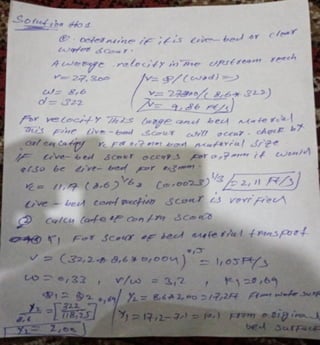 Solution #01
① Determine if it is live-bed or clear
water scour.
Average velocity in the upstream reach
v = 27,300 / V = Q/(w×d) =>
w = 8.6 / V = 27300/(8.6*322)
d = 322 / V = 9.86 ft/s
For velocity this large and bed material
this fine live-bed scour will occur. check by
calculating Vc for 0.7mm bed material size
IF live-bed scour occurs for 0.7mm it would
also be live-bed for 0.3mm.
Vc = 11.17 (8.6)^1/6 × (0.0023)^1/3 = 2.11 ft/s
Live-bed contraction scour is verified
② calculate of contra scour
K1 For scour of bed material transport
V = (32.2×8.6×0.004)^0.5 = 1,05 ft/s
w = 0,33, V/w = 3,2, K1 = 0,69
Q1 = Q2 / Y2 = 8.6*2,00 = 17,2 ft From water surf
Y2/8.6 = [322/118,25]^0,69 / Y1 = 17,2 - 7.1 = 10.1 From original
bed surface
Y2 = 2,00